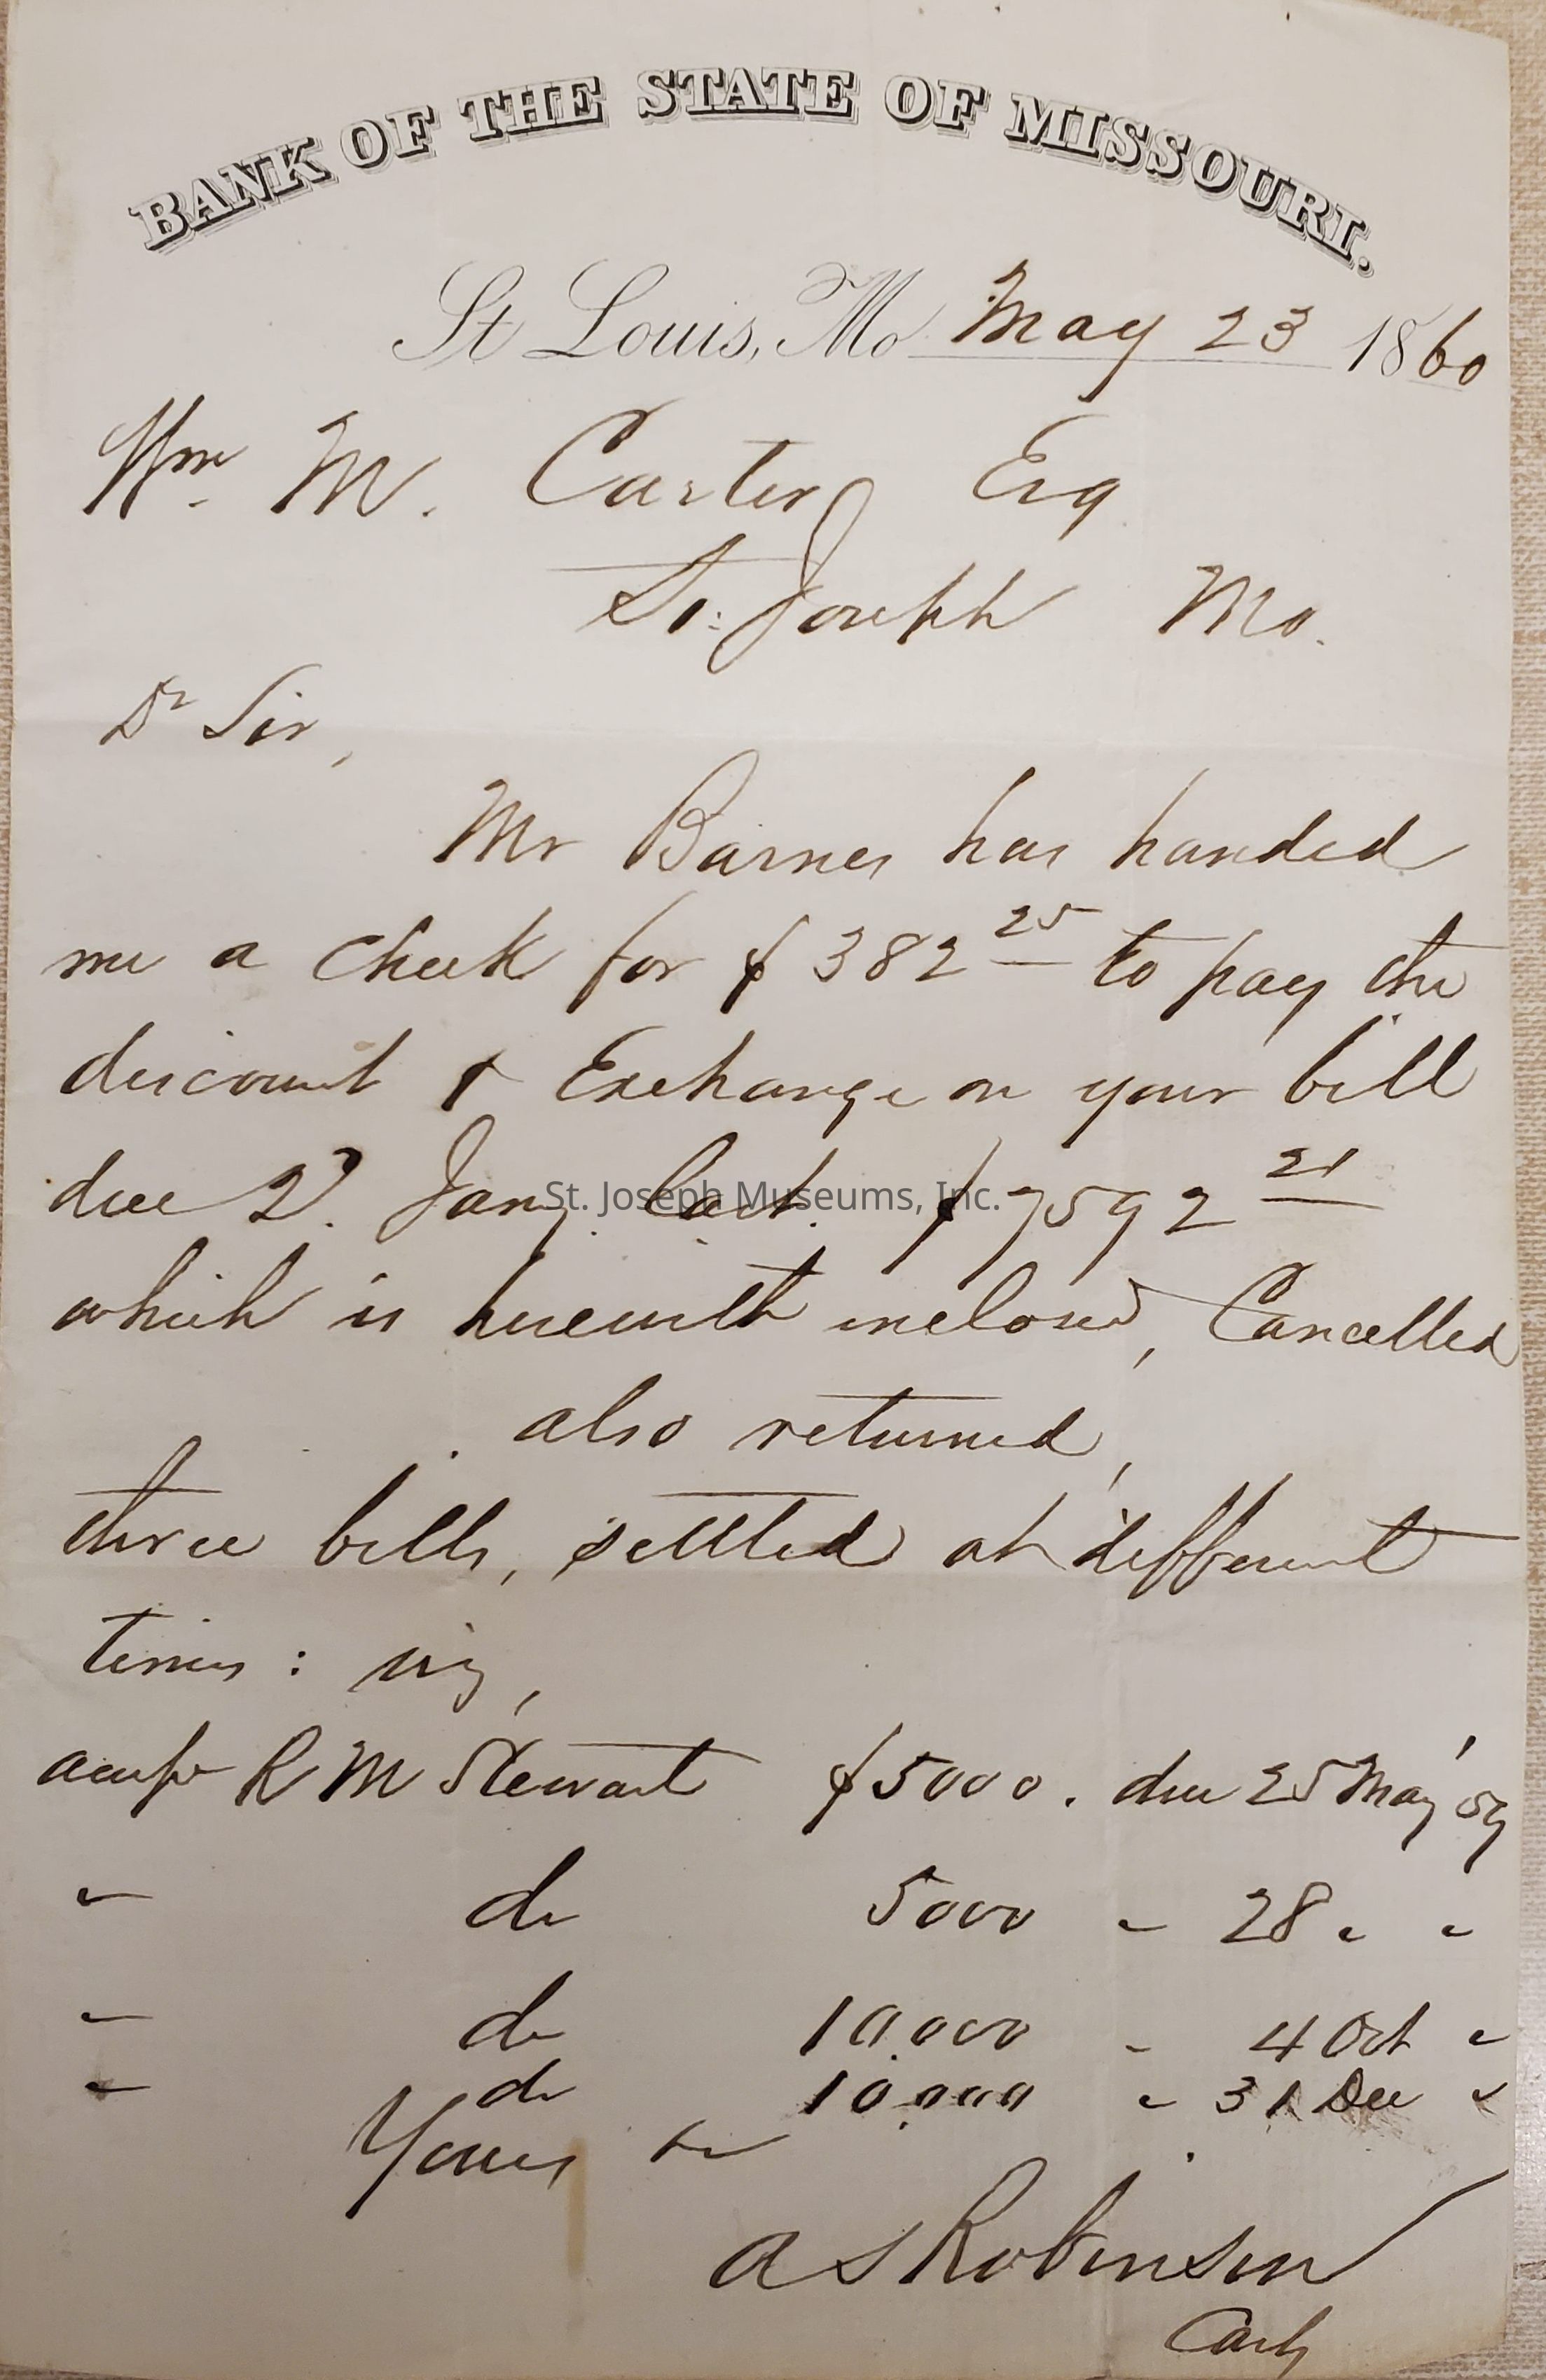 BANK OF THE STATE OF MISSOURI.
St Louis, Mo May 23 1860
Wm M. Carter Esq
St. Joseph Mo.
Dr Sir,
Mr Barnes has handed
me a Check for $382 25 to pay the
discount & Exchange on your bill
due 2d. Jany. last. $7592 21
St. Joseph Museums, Inc.
which is herewith inclosed, Cancelled
also returned,
three bills, settled at different
times: viz,
R M Stewart $5000. due 25 May '59
" do 5000 " 28 " "
" do 10.000 " 4 Oct "
" do 10.000 " 31 Dec "
Yours
A S Robinson
Cash